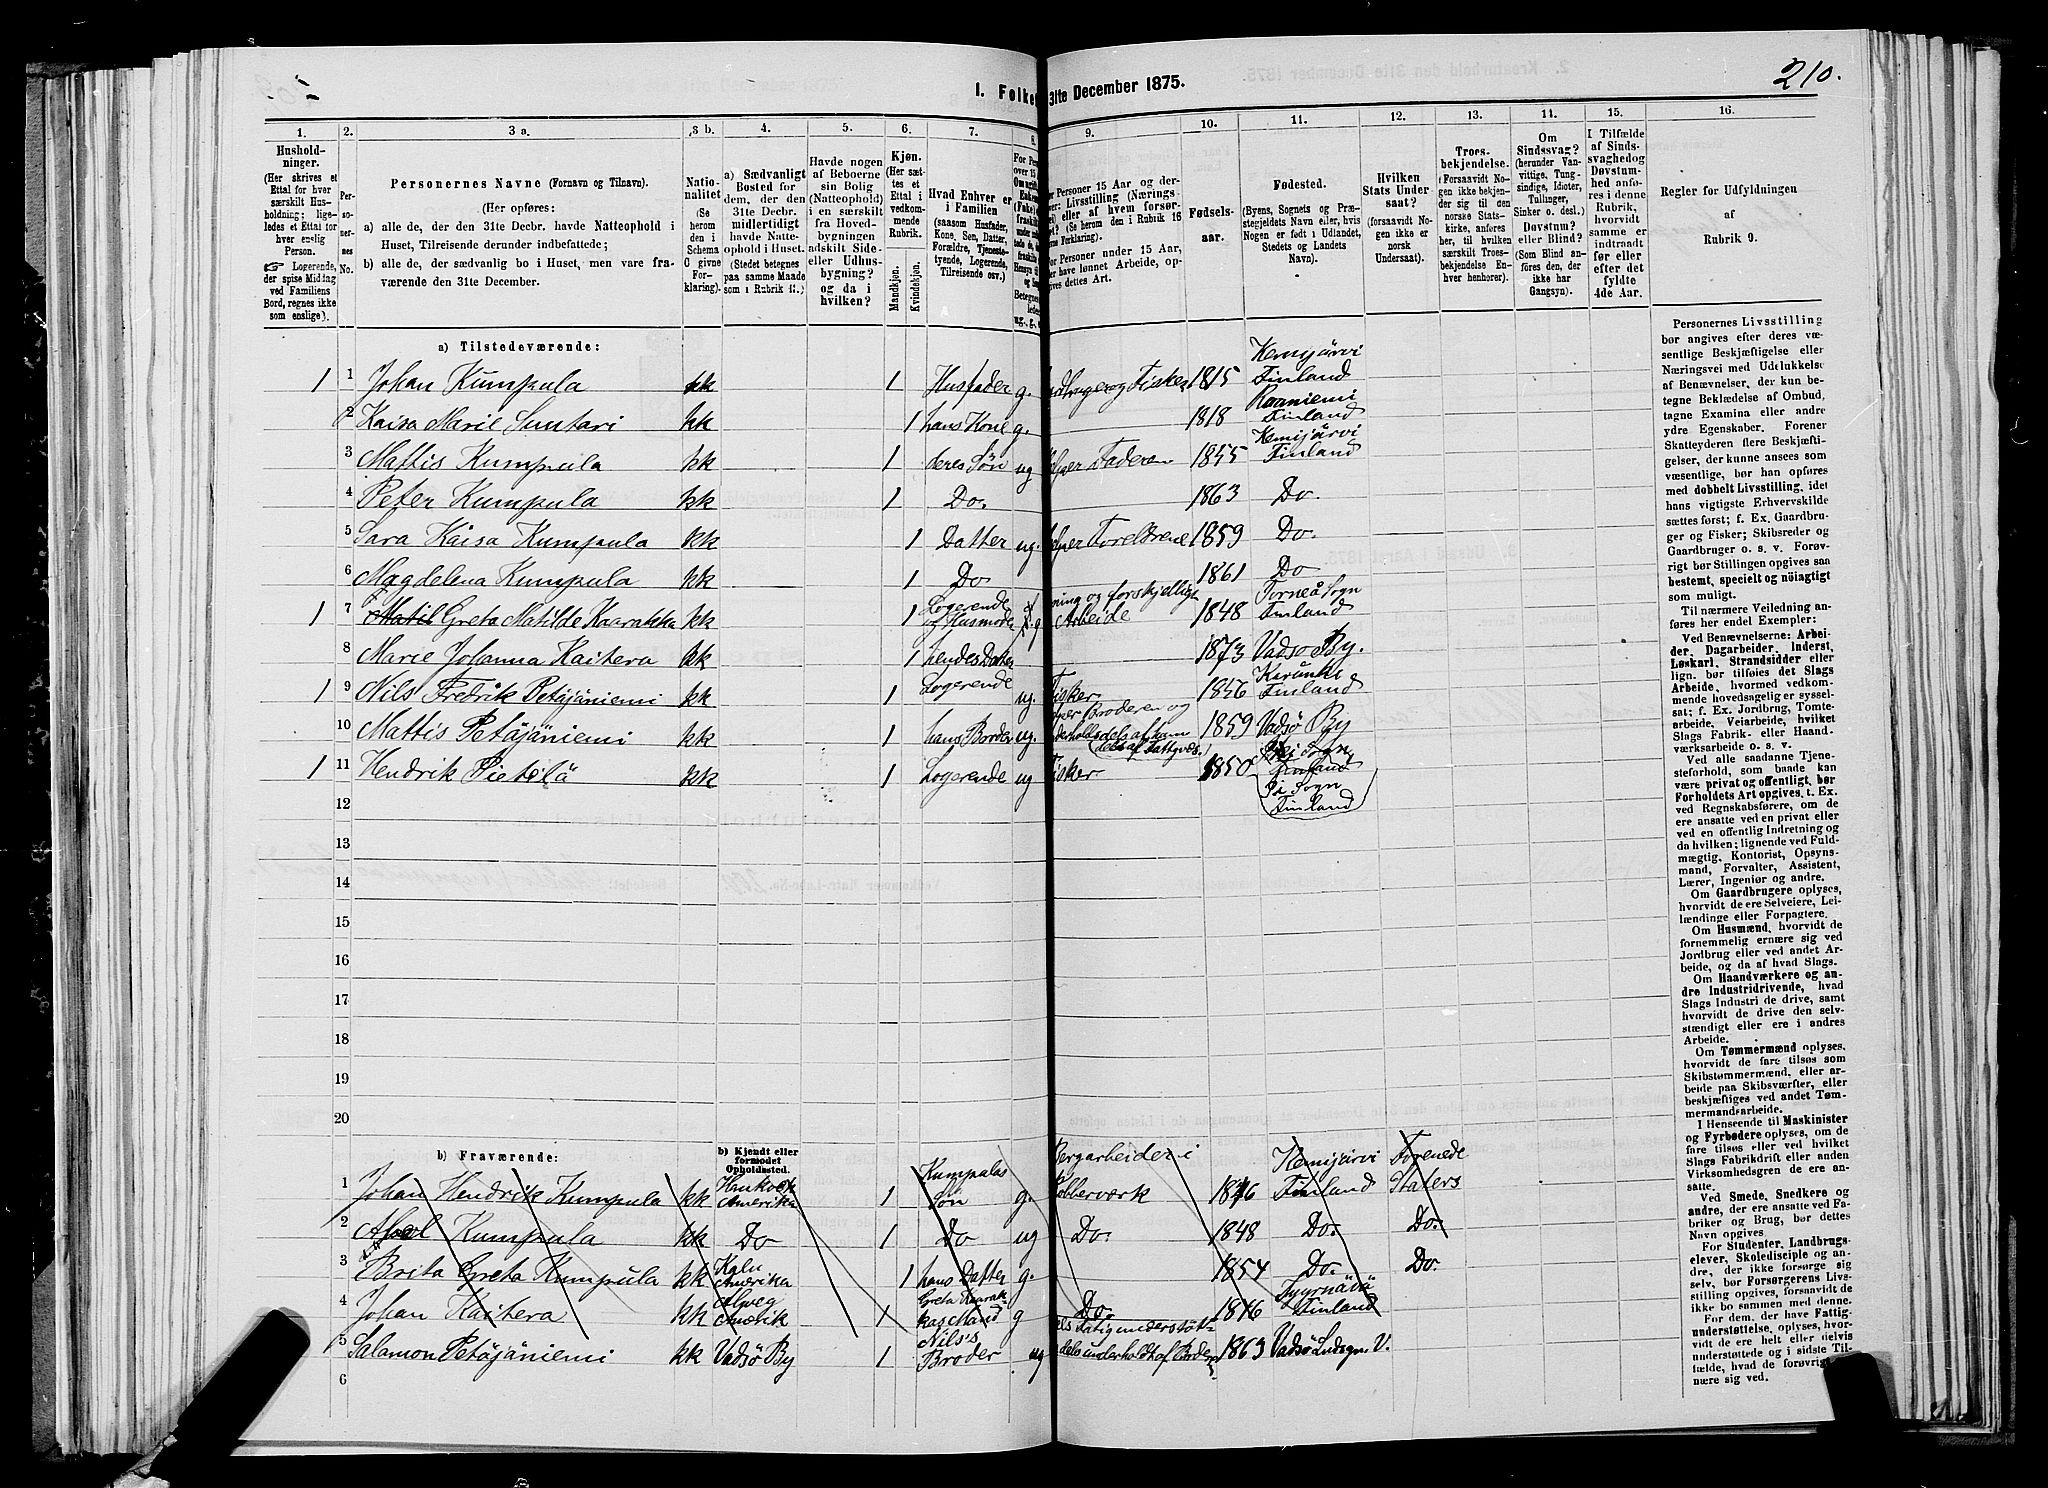 210.
I. Folke 31te December 1875.
1. 2. 3 a. 3 b. 4. 5. 6. 7. 8. 9. 10. 11. 12. 13. 14. 15. 16.
Hushold-
ninger.
(Her skrives et
Ettal for hver
særskilt Hus-
holdning; lige-
ledes et Ettal for
hver enslig
Person.
☞ Logerende,
der spise Middag
ved Familiens
Bord, regnes ikke
som enslige).
Per-
so-
ner-
nes
No.
Personernes Navne (Fornavn og Tilnavn).
(Her opføres:
a) alle de, der den 31te Decbr. havde Natteophold i
Huset, Tilreisende derunder indbefattede;
b) alle de, der sædvanlig bo i Huset, men vare fra-
værende den 31te December.
Natio-
nalitet
(Se
herom
den i
Schema
C givne
For-
klaring).
a) Sædvanligt
Bosted for
dem, der den
31te Decbr.
midlertidigt
havde Natte-
ophold i Huset.
(Stedet betegnes
paa samme Maade
som i Rubrik 11.)
Havde nogen
af Beboerne
sin Bolig
(Natteophold)
i en særskilt
fra Hoved-
bygningen
adskilt Side-
eller Udhus-
bygning?
og da i
hvilken?
Kjøn.
(Her sæt-
tes et
Ettal i
vedkom-
mende
Rubrik.
Mandkjøn.
Kvindekjøn.
Hvad Enhver er
i Familien
(saasom Husfader,
Kone, Søn, Datter,
Forældre, Tjeneste-
tyende, Logerende,
Tilreisende osv.)
Fødsels-
aar.
Fødested.
(Byens, Sognets og Præ-
stegjeldets Navn eller, hvis
Nogen er født i Udlandet,
Stedets og Landets
Navn).
Hvilken
Stats Under-
saat?
(forsaavidt No-
gen ikke er
norsk
Undersaat).
Troes-
bekjendelse.
(Forsaavidt No-
gen ikke bekjen-
der sig til den
norske Stats-
kirke, anføres
her, til hvilken
særskilt Troes-
bekjendelse En-
hver henhører).
Om
Sindssvag?
(herunder Van-
vittige, Tung-
sindige, Idioter,
Tullinger,
Sinker o. desl.).
Døvstum?
eller Blind?
(Som Blind an-
føres den, der
ikke har
Gangsyn).
I Tilfælde
af Sinds-
svaghed og
Døvstum-
hed anfø-
res i denne
Rubrik,
hvorvidt
samme er
indtraadt
før eller
efter det
fyldte
4de Aar.
Regler for Udfyldningen
af
Rubrik 9.
a) Tilstedeværende:
1 1 Johan Kumpula kk 1 Husfader g. Fisker 1815 Kemijärvi Finland
2 Kaisa Marie Suntari kk 1 hans Kone g. 1818 Finland
3 Mattis Kumpula kk 1 deres Søn ug Faderen 1855 Kemijärvi Finland
4 Peter Kumpula kk 1 Do. 1863 Do.
5 Sara Kaisa Kumpula kk 1 Datter ug. 1859 Do.
6 Magdelena Kumpula kk 1 Do 1861 Do
1 7 Greta Matilde Kaarakka kk 1 Logerende og forskjelligt Arbeide 1848 Torneå Sogn Finland
8 Marie Johanna Kaitera kk 1 hendes Datter 1873 Vadsø By.
1 9 Nils Fredrik Petäjäniemi kk 1 Logerende ug. Fisker 1856 Finland
10 Mattis Petäjäniemi kk 1 hans Broder ug. Broderen og 1859 Vadsø By
1 11 Hendrik Pietilä kk 1 Logerende ug Fisker 1850 Sogn Finland
Sogn
Finland
12
13
14
15
16
17
18
19
20
b) Fraværende:
b) Kjendt eller
formodet
Opholdssted.
1 Johan Hendrik Kumpula kk Amerika 1 Kumpulas Søn g. Bergarbeider i Kobberværk 1846 Kemijärvi Finland Forenede Staters
2 Abel Kumpula kk Do 1 Do ug Do. 1848 Do. Do.
3 Brita Greta Kumpula kk Amerika 1 hans Datter g. 1854 Do. Do.
4 Johan Kaitera kk 1 Mand g Do. 1846 Tyrnävä Finland
5 Salamon Petäjäniemi kk Vadsø By 1 Nils's Broder ug 1863 Vadsø Landsogn.
6
Personernes Livsstilling
bør angives efter deres væ-
sentlige Beskjæftigelse eller
Næringsvei med Udelukkelse
af Benævnelser, der kun be-
tegne Beklædelse af Ombud,
tagne Examina eller andre
ydre Egenskaber. Forener
Skatteyderen flere Beskjæfti-
gelser, der kunne ansees som
væsentlige, bør han opføres
med dobbelt Livsstilling, idet
hans vigtigste Erhvervskilde
sættes først; f. Ex. Gaardbru-
ger og Fisker; Skibsreder og
Gaardbruger o. s. v. Forøv-
rigt bør Stillingen opgives saa
bestemt, specielt og nöiagtigt
som muligt.
Til nærmere Veiledning an-
føres her endel Exempler:
Ved Benævnelserne: Arbei-
der, Dagarbeider, Inderst,
Løskarl, Strandsidder eller
lign. bør tilføies det Slags
Arbeide, hvormed vedkom-
mende hovedsagelig er syssel-
sat; f. Ex. Jordbrug, Tomte-
arbeide, Veiarbeide, hvilket
Slags Fabrik- eller Haand-
værksarbeide o. s. v.
Ved alle saadanne Tjene-
steforhold, som baade kan
være privat og offentligt, bør
Forholdets Art opgives, t. Ex.
ved Regnskabsførere, om de
ere ansatte ved en privat eller
ved en offentlig Indretning og
da hvilken; lignende ved Fuld-
mægtig, Kontorist, Opsyns-
mand, Forvalter, Assistent,
Lærer, Ingeniør og andre.
Om Gaardbrugere oplyses,
hvorvidt de ere Selveiere, Lei-
lændinge eller Forpagtere.
Om Husmænd, hvorvidt de
fornemmelig ernære sig ved
Jordbrug eller ved andet Ar-
beide, og da af hvad Slags.
Om Haandværkere og an-
dre Industridrivende, hvad
Slags Industri de drive, samt
hvorvidt de drive den selv-
stændigt eller ere i andres
Arbeide.
Om Tømmermænd oplyses,
hvorvidt de fare tilsøs som
Skibstømmermænd, eller ar-
beide paa Skibsværfter, eller
beskjæftiges ved andet Tøm-
mermandsarbeide.
I Henseende til Maskinister
og Fyrbødere oplyses, om de
fare tilsøs eller ved hvilket
Slags Fabrikdrift eller anden
Virksomhedsgren de ere an-
satte.
Ved Smede, Snedkere og
andre, der ere ansatte ved Fa-
briker og Brug, bør dettes
Navn opgives.
For Studenter, Landbrugs-
elever, Skoledisciple og an-
dre, der ikke forsørge sig
selv, bør Forsørgerens Livs-
stilling opgives, forsaavidt de
ikke bo sammen med denne.
For dem, der have Fattig-
understøttelse, oplyses, hvor-
vidt de ere helt eller delvis
understøttede og i sidste Til-
fælde, hvad de forøvrigt er-
nære sig ved.